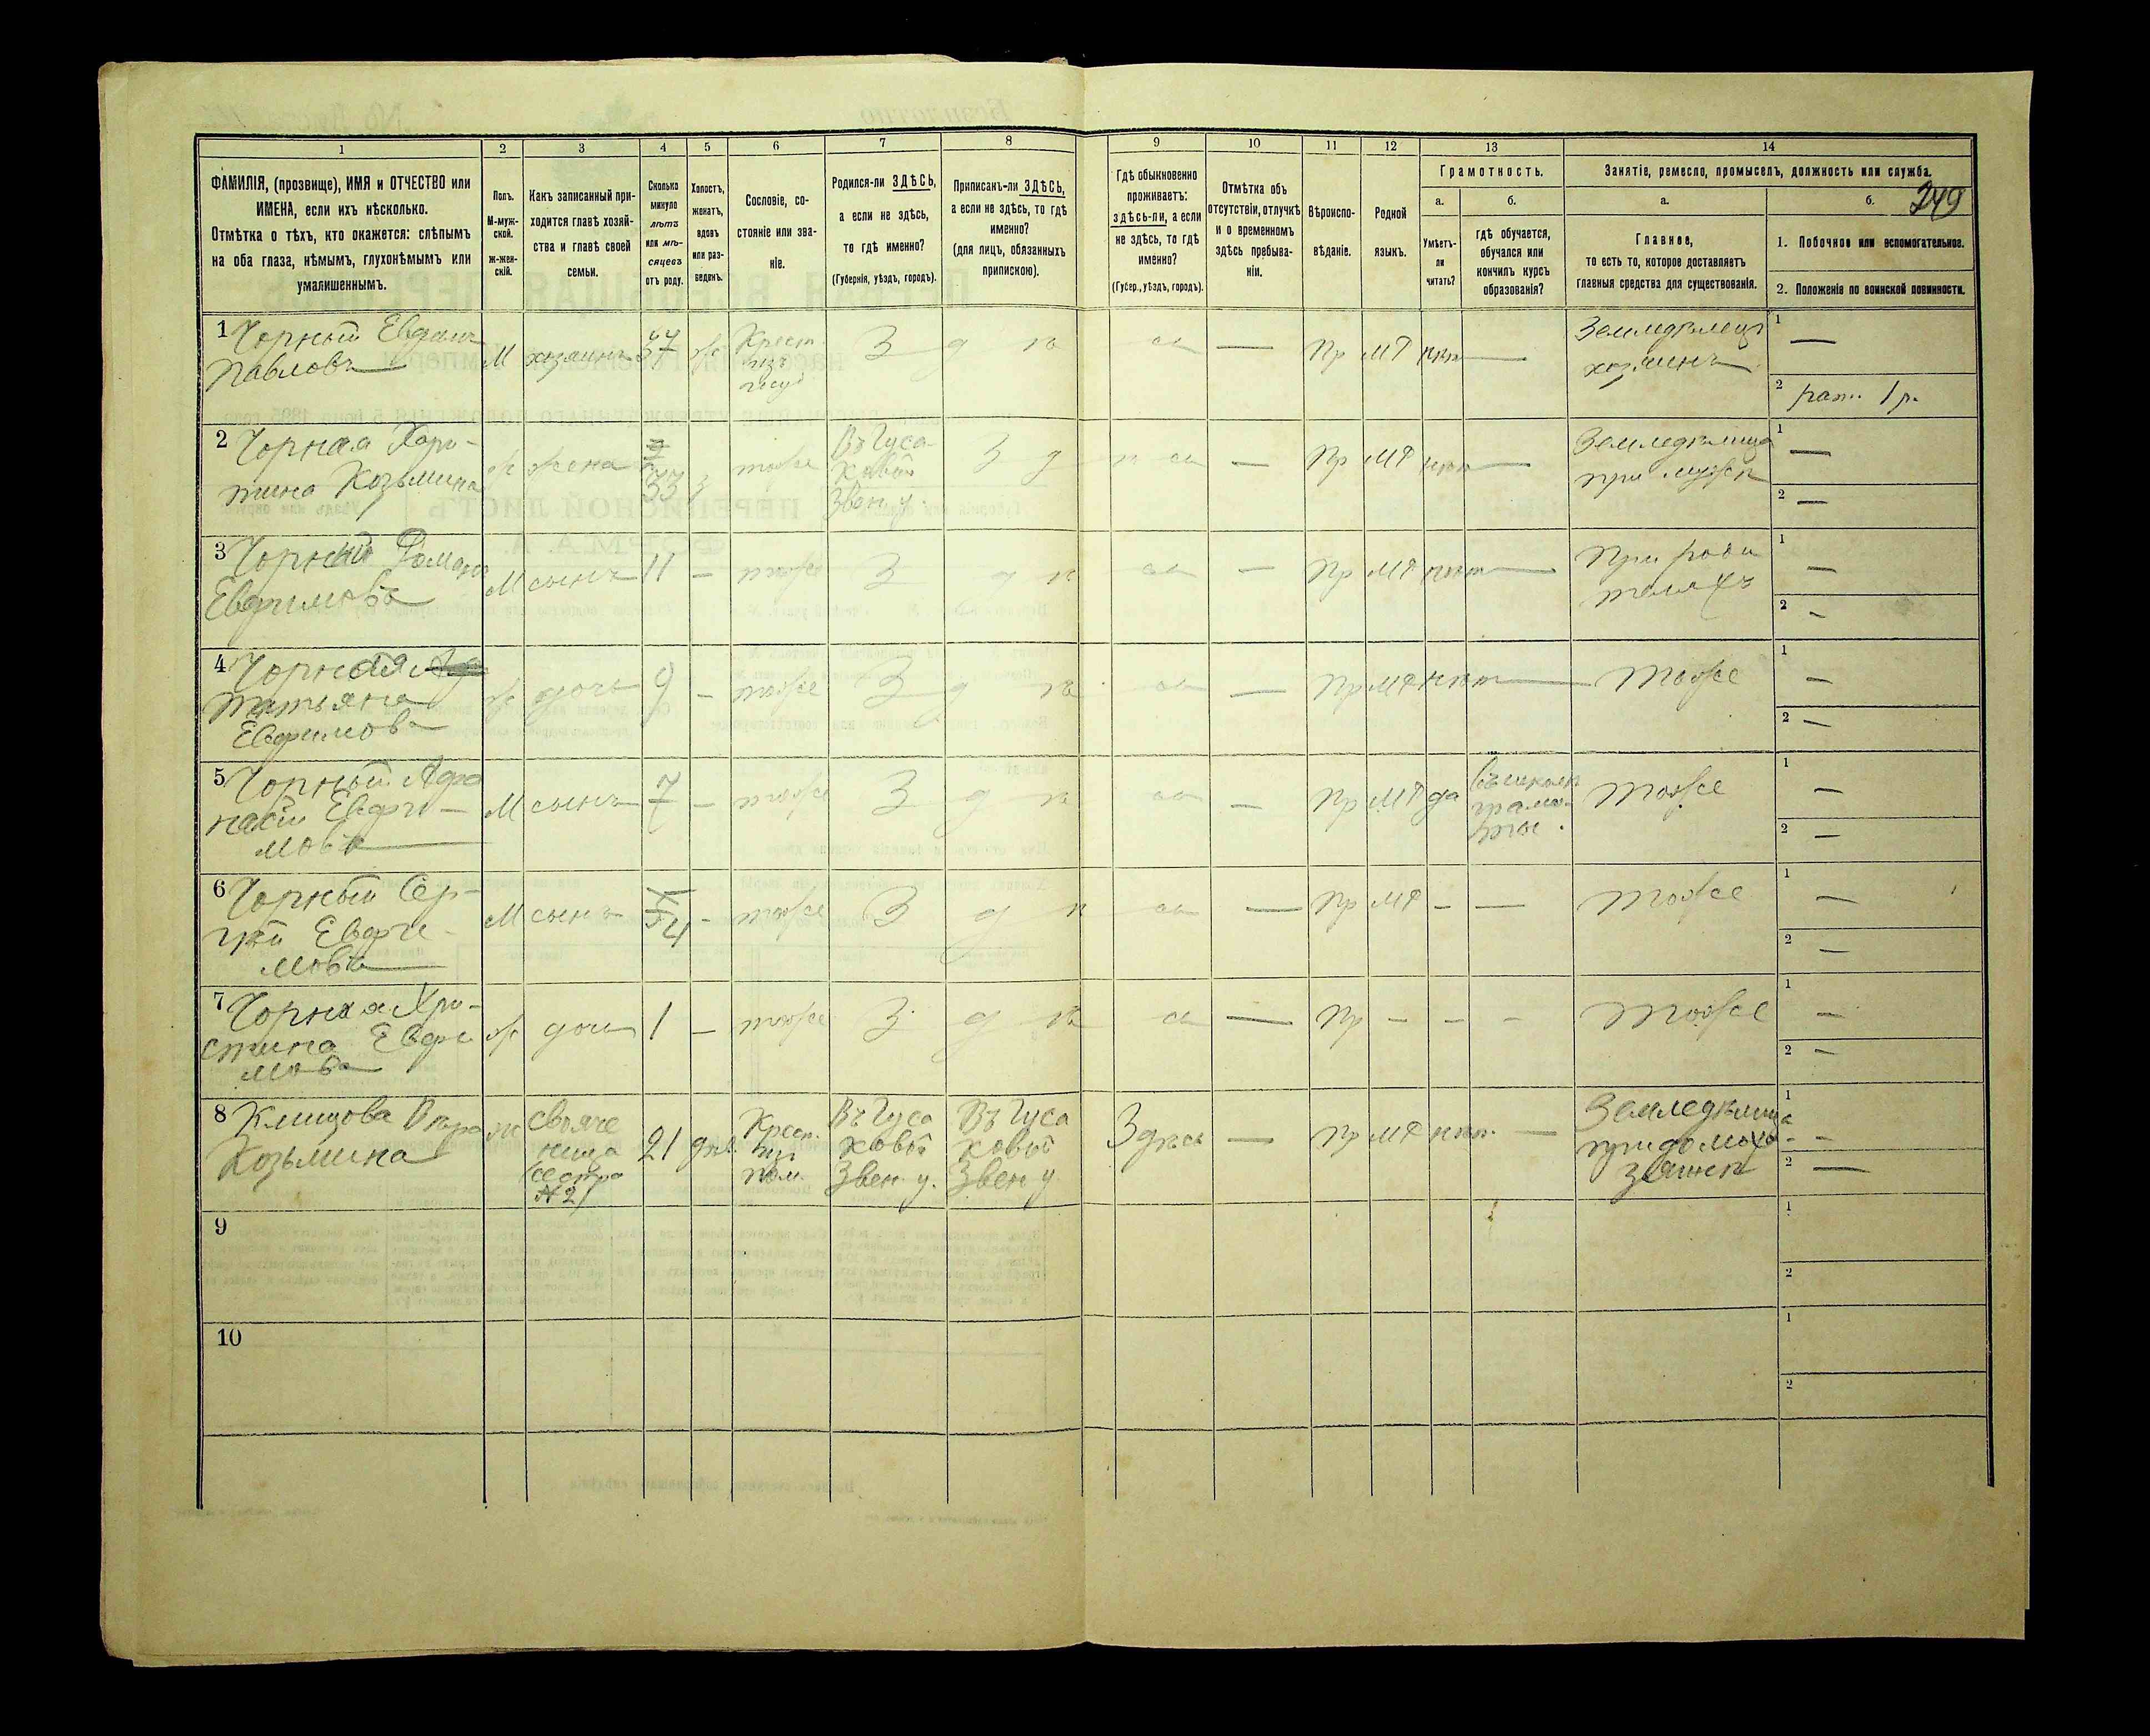 249
1 2 3 4 5 6 7 8 9 10 11 12 13 14
ФАМИЛІЯ, (прозвище), ИМЯ и ОТЧЕСТВО или
ИМЕНА, если ихъ нѣсколько.
Отмѣтка о тѣхъ, кто окажется: слѣпымъ
на оба глаза, нѣмымъ, глухонѣмымъ или
умалишеннымъ.
Полъ.
М-муж-
ской.
Ж-жен-
скій.
Какъ записанный при-
ходится главѣ хозяй-
ства и главѣ своей
семьи.
Сколько
минуло
лѣтъ
или мѣ-
сяцевъ
отъ роду.
Холостъ,
женатъ,
вдовъ
или раз-
веденъ.
Сословіе, со-
стояніе или зва-
ніе.
Родился-ли ЗДѢСЬ,
а если не здѣсь,
то гдѣ именно?
(Губернія, уѣздъ, городъ).
Приписанъ-ли ЗДѢСЬ,
а если не здѣсь, то гдѣ
именно?
(для лицъ, обязанныхъ
припискою).
Гдѣ обыкновенно
проживаетъ:
здѣсь-ли, а если
не здѣсь, то гдѣ
именно?
(Губер., уѣздъ, городъ).
Отмѣтка объ
отсутствіи, отлучкѣ
и о временномъ
здѣсь пребыва-
ніи.
Вѣроиспо-
вѣданіе.
Родной
языкъ.
Грамотность.
а.
Умѣетъ-
ли
читать?
б.
гдѣ обучается,
обучался или
кончилъ курсъ
образованія?
Занятіе, ремесло, промыселъ, должность или служба.
а.
Главное,
то есть то, которое доставляетъ
главныя средства для существованія.
б.
1. Побочное или вспомогательное.
2. Положеніе по воинской повинности.
1 Чорный
Павловъ
М
хозяинъ
37
ж
Крест
изъ
З д ѣ сь
—
Пр
МР
нѣт
—
Земледѣлецъ
хозяинъ
1 —
2 1 р.
2 Чорная Хари-
тина Козьмина
ж
жена
33
з
тоже
Въ Гуса
ковой
Звен у.
З д ѣ сь
—
Пр
МР
нѣт
—
Земледѣлица
при мужѣ
1 —
2 —
3 Чорный Романъ
Евфимовъ
М
сынъ
11
—
тоже
З д ѣ сь
—
Пр
МР
нѣт
—
При роди
теляхъ
1 —
2 —
4 Чорная
Татьяна
Евфимова
ж
дочь
9
—
тоже
З д ѣ сь
—
Пр
МР
нѣт
—
Тоже
1 —
2 —
5 Чорный Афа
насій Евфи-
мовъ
М
сынъ
7
—
тоже
З д ѣ сь
—
Пр
МР
да
въ школѣ
грамо-
ты.
Тоже
1 —
2 —
6 Чорный Сер-
гѣй Евфи-
мовъ
М
сынъ
4
-
тоже
З д ѣ сь
—
Пр
МР
—
—
Тоже
1 —
2 —
7 Чорная Хри-
стина Евфи
мова
ж
дочь
1
—
тоже
З д ѣ сь
—
Пр
—
—
—
Тоже
1 —
2 —
8 Климова
Козьмина
ж
своячe
ница
(сестра
№ 2)
21
дѣв.
Крест.
из
пом.
Въ Гуса
ковой
Звен у.
Въ Гуса
ковой
Звен у
Здѣсь
—
Пр
МР
нѣт.
—
Земледѣлица
при домохо
зяинѣ
1 —
2 —
9
1
2
10
1
2